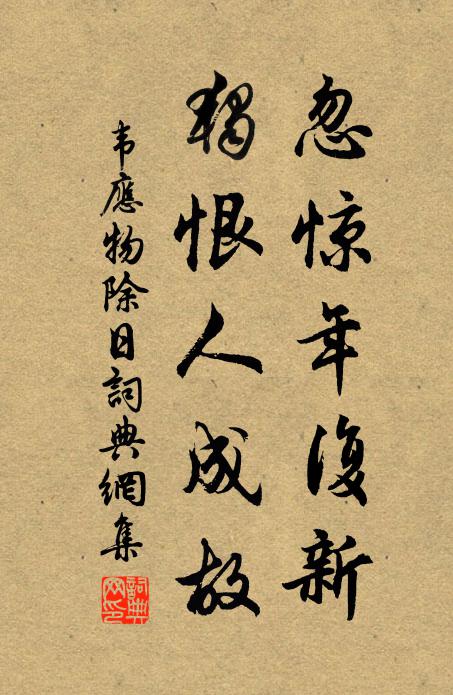 忽惊年復新
獨恨人成故
韦應物除日詞典網集
詞典网印